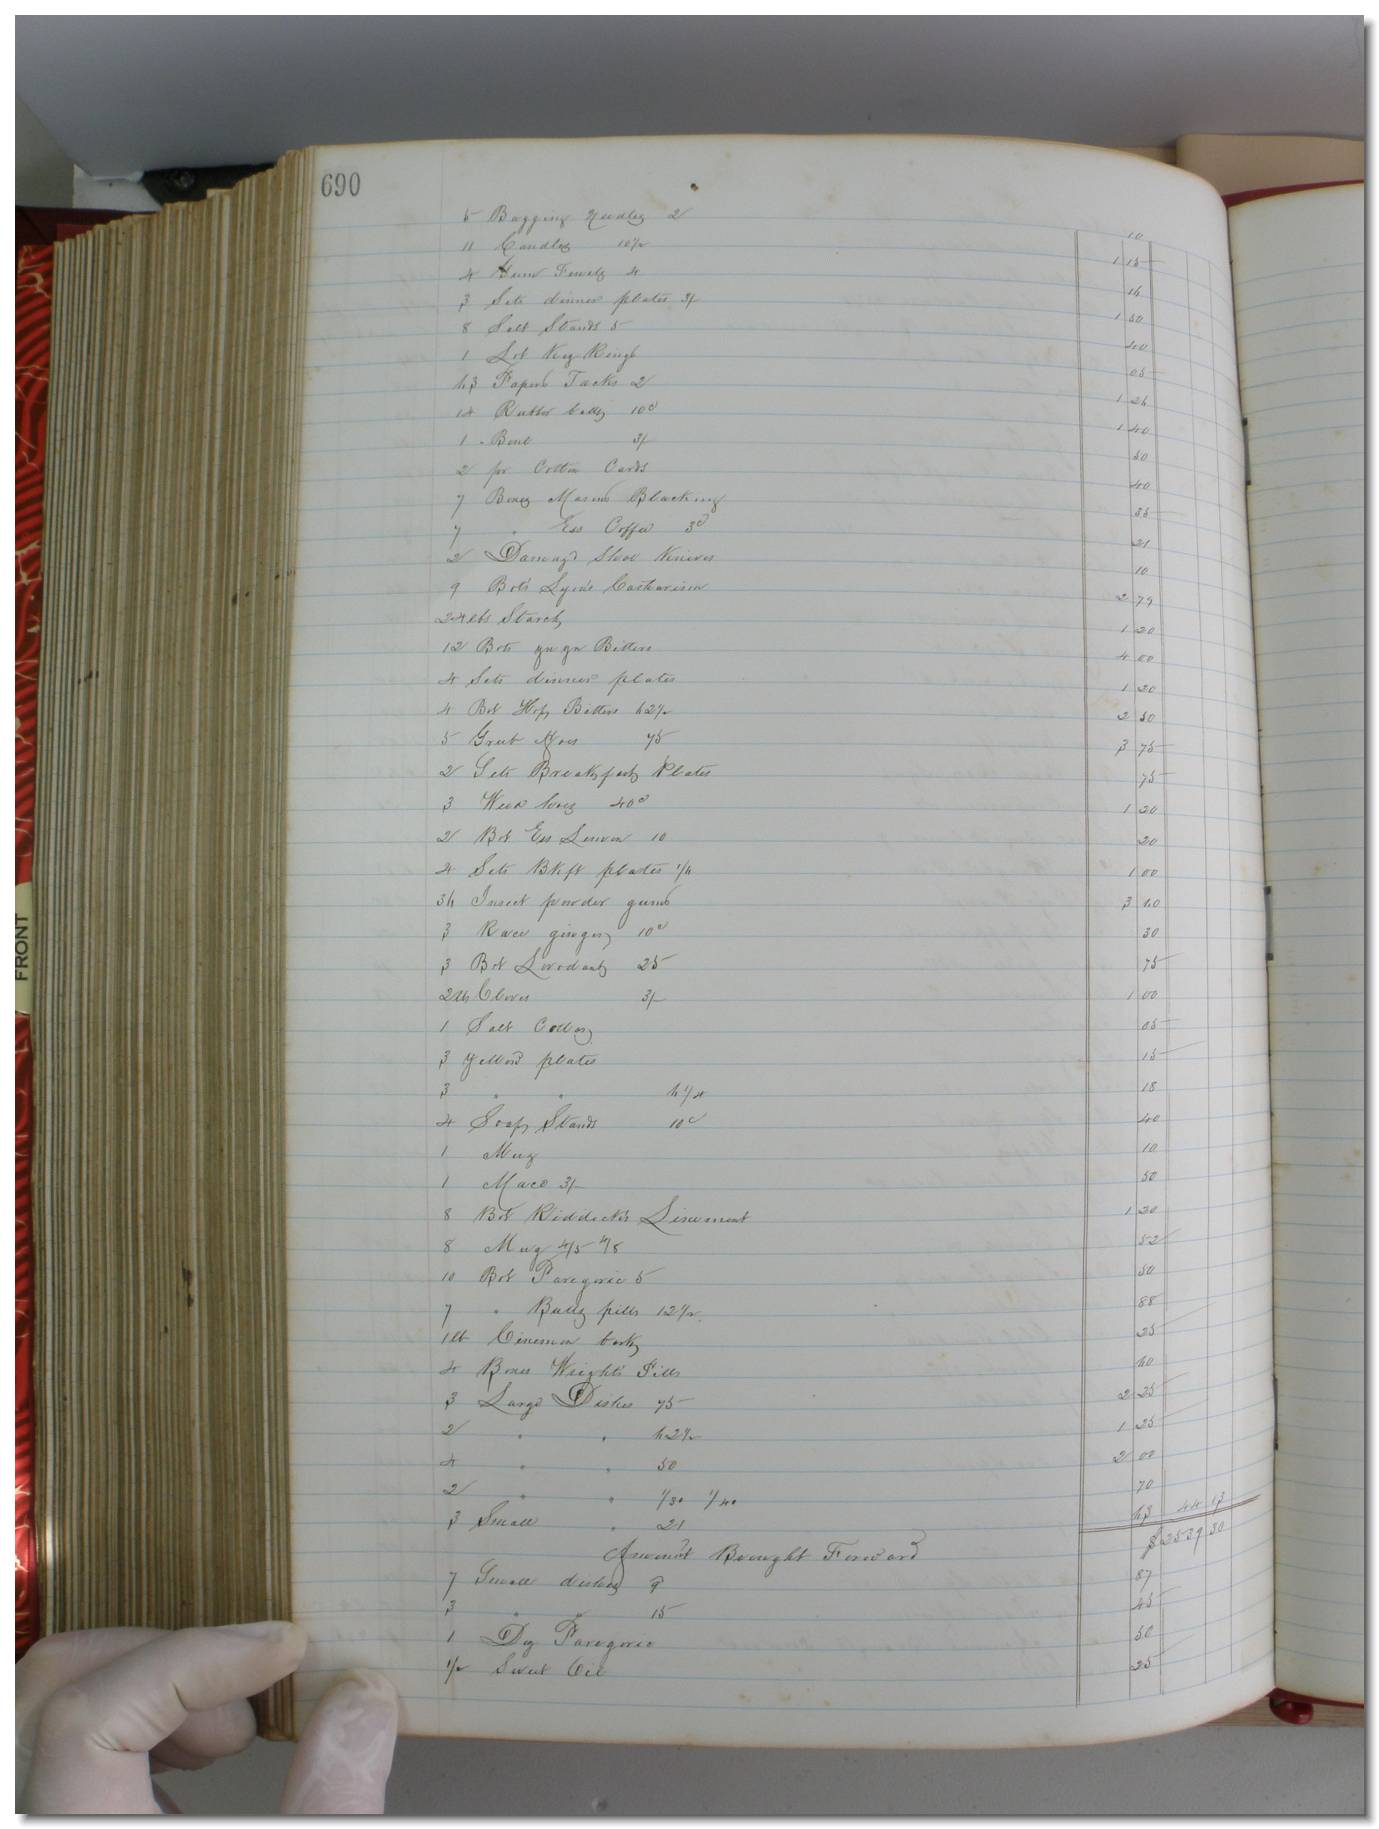 690
5 Bagging Needles 2 10
11 Candles 10½ 1 15
4 Gum 4 16
3 Sets dinner plates 3/- 1 50
8 Salt Stands 5 40
1 Lot Key Rings 05
63 Papers Tacks 2 1 26
14 Rubber balls 10c 1 40
1 3/- 50
2 pr Cotton Cards 40
7 Boxes Masons Blacking 35
7 " Ess Coffee 3c 21
2 Damagd Shoe Knives 10
9 Bots Lyon's Kathairon 2 79
24 lbs Starch 1 20
12 Bots Bitters 4 00
4 Sets dinner plates 1 20
4 Bot Hop Bitters 62½ 2 50
5 Grub Hoes 75 3 75
2 Sets Breakfast Plates 75
3 Weed hoes 40c 1 20
2 Bot Ess Lemon 10 20
4 Sets Bkft plates 1/6 1 00
36 Insect powder guns 3 60
3 Race ginger 10c 30
3 Bot 25 75
2 lb Cloves 3/- 1 00
1 Salt Cellar 05
3 Yellow plates 15
3 " " 6¼ 18
4 Soap Stands 10c 40
1 Mug 10
1 Mace 3/- 50
8 Bot Riddick's Linement 1 20
8 Mug 4/5 4/8 52
10 Bot Paregoric 5 50
7 " Bulls pills 12½ 88
1 lb Cinemon bark 25
4 Boxes Wright's Pills 60
3 Large Dishes 75 2 25
2 " " 62½ 1 25
4 " " 50 2 00
2 " " 1/30 1/40 70
3 Small " 21 63 44 13
Amount Brought Forward $2539 30
7 Small dishes 87
3 " " 15 45
1 Paregoric 50
½ Sweet Oil 25
FRONT